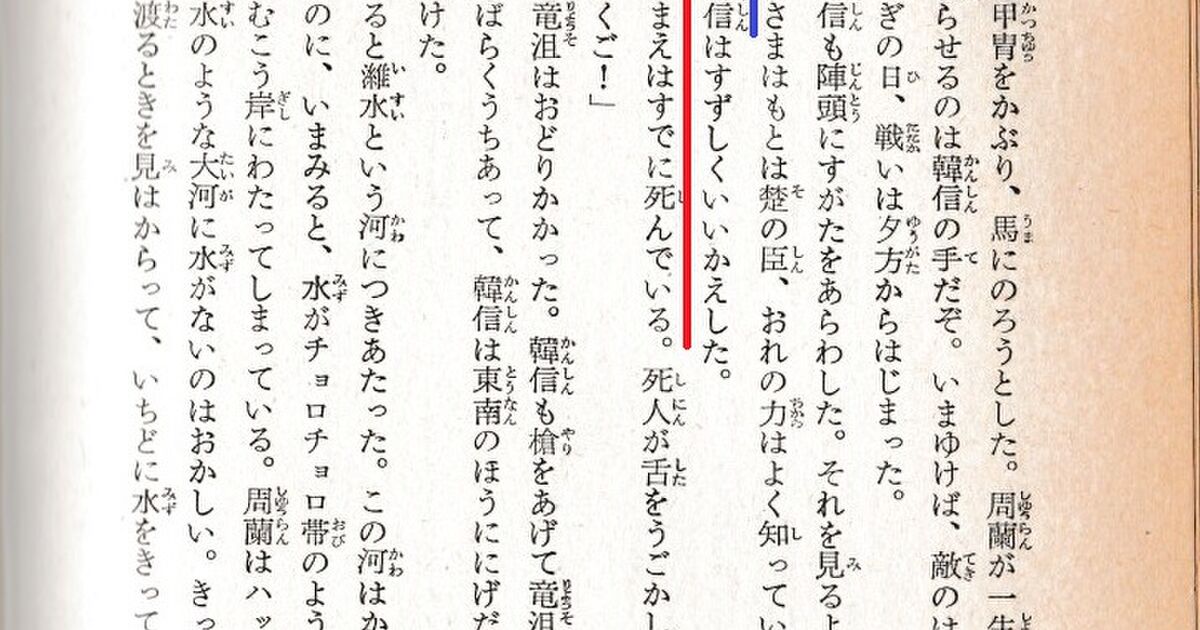 甲冑をかぶり、馬にのろうとした。周蘭が一生
らせるのは韓信の手だぞ。いまゆけば、敵のは
ぎの日、戦いは夕方からはじまった。
信も陣頭にすがたをあらわした。それを見るよ
さまはもとは楚の臣、おれの力はよく知ってい
信はすずしくいいかえした。
まえはすでに死んでいる。死人が舌をうごかし
くご！」
竜沮はおどりかかった。韓信も槍をあげて竜沮
ばらくうちあって、韓信は東南のほうににげだ
けた。
ると濰水という河につきあたった。この河はか
のに、いまみると、水がチョロチョロ帯のよう
むこう岸にわたってしまっている。周蘭はハッ
水のような大河に水がないのはおかしい。きっ
渡るときを見はからって、いちどに水をきって